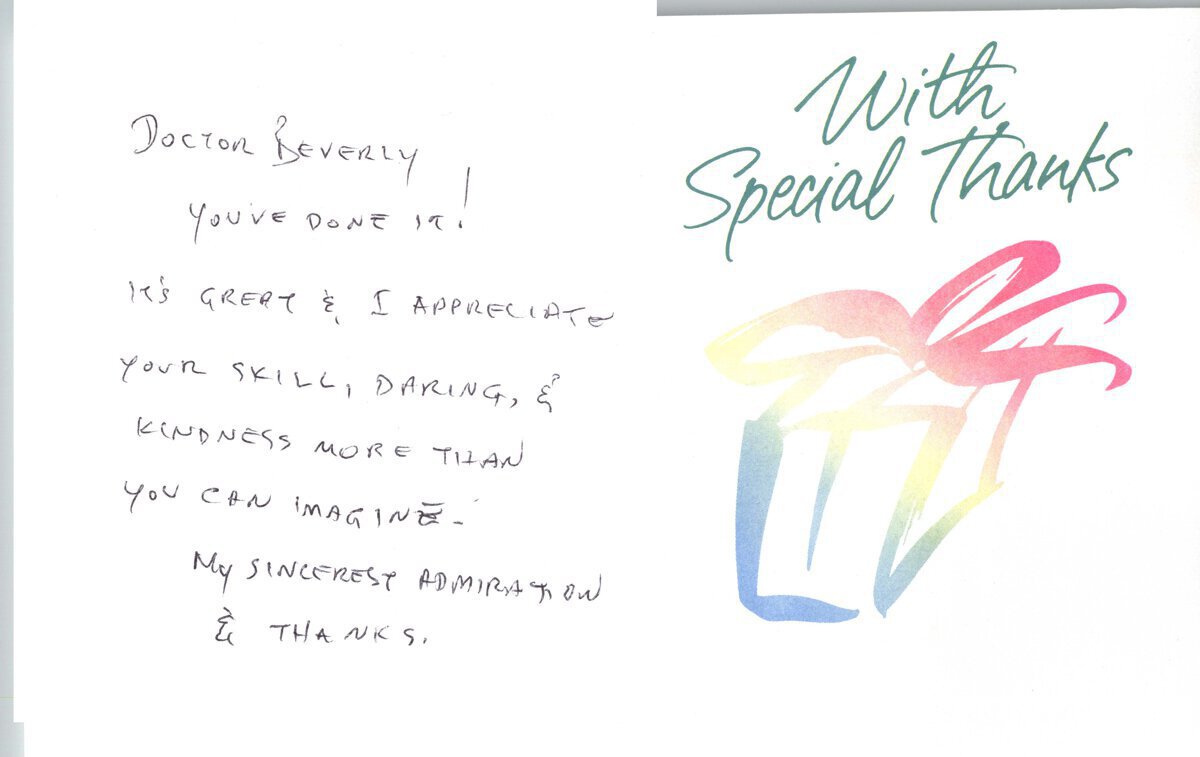 DOCTOR BEVERLY
YOU'VE DONE IT!
IT'S GREAT & I APPRECIATE
YOUR SKILL, DARING, &
KINDNESS MORE THAN
YOU CAN IMAGINE -
MY SINCEREST ADMIRATION
& THANKS.
With
Special Thanks